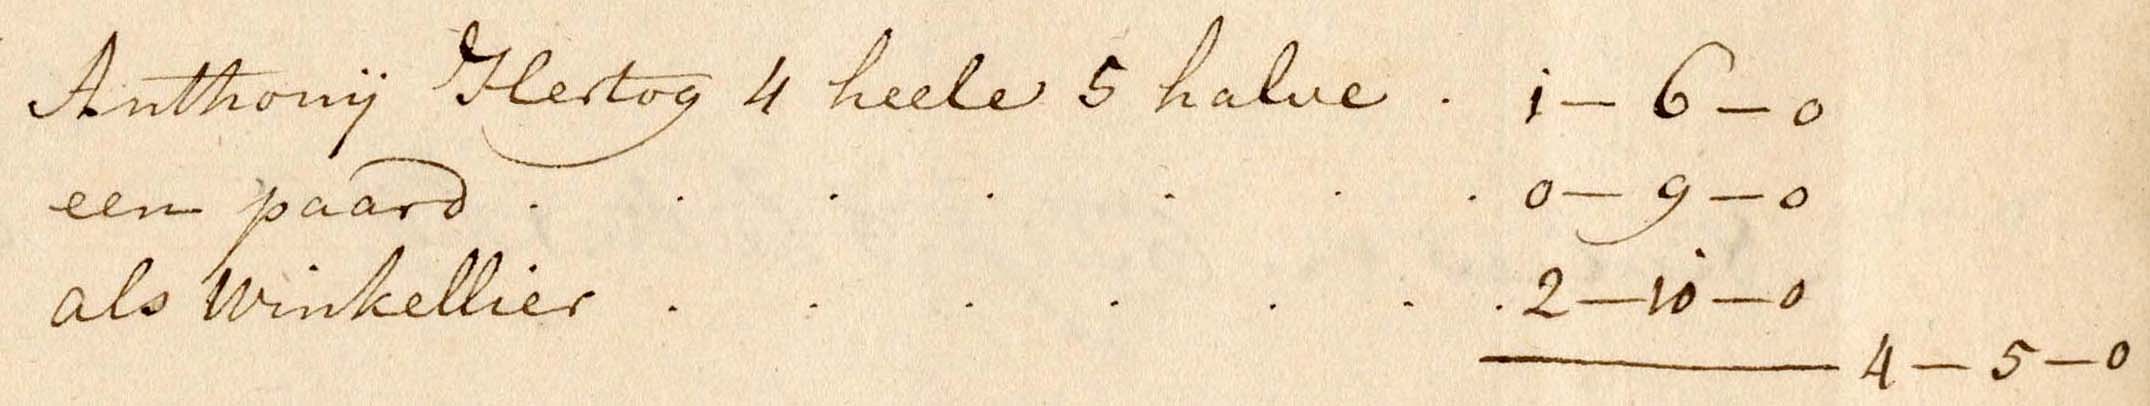 Anthonij Hertog 4 heele 5 halve . 1 — 6 — 0
een paard . . . . . . . 0 — 9 — 0
als Winkellier . . . . . . . 2 — 10 — 0
4 — 5 — 0